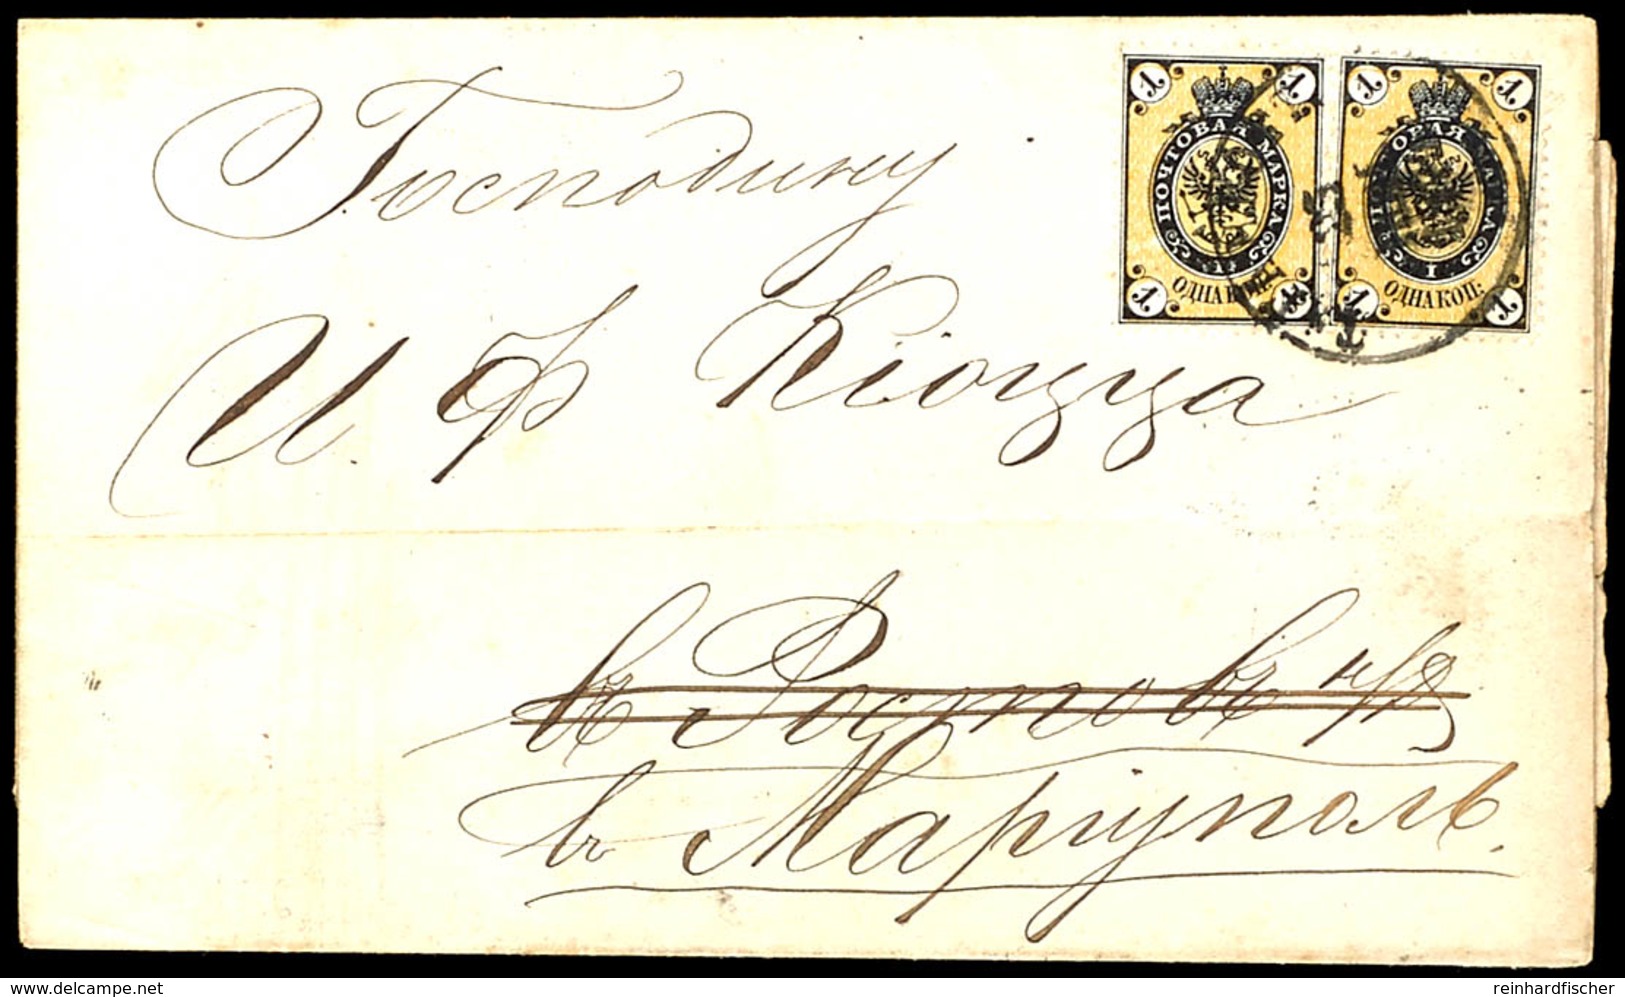 1 1 1 1
ПОЧТОВАЯ МАРКА ОВАЯ МАРКА
1 I
1 ОДНА КОП: 1 1 ОДНА КОП: 1
Господину
И. Ф Кіоцца
въ Ростовъ н/Д
въ Маріуполь.
delcampe.net
reinhardfischer